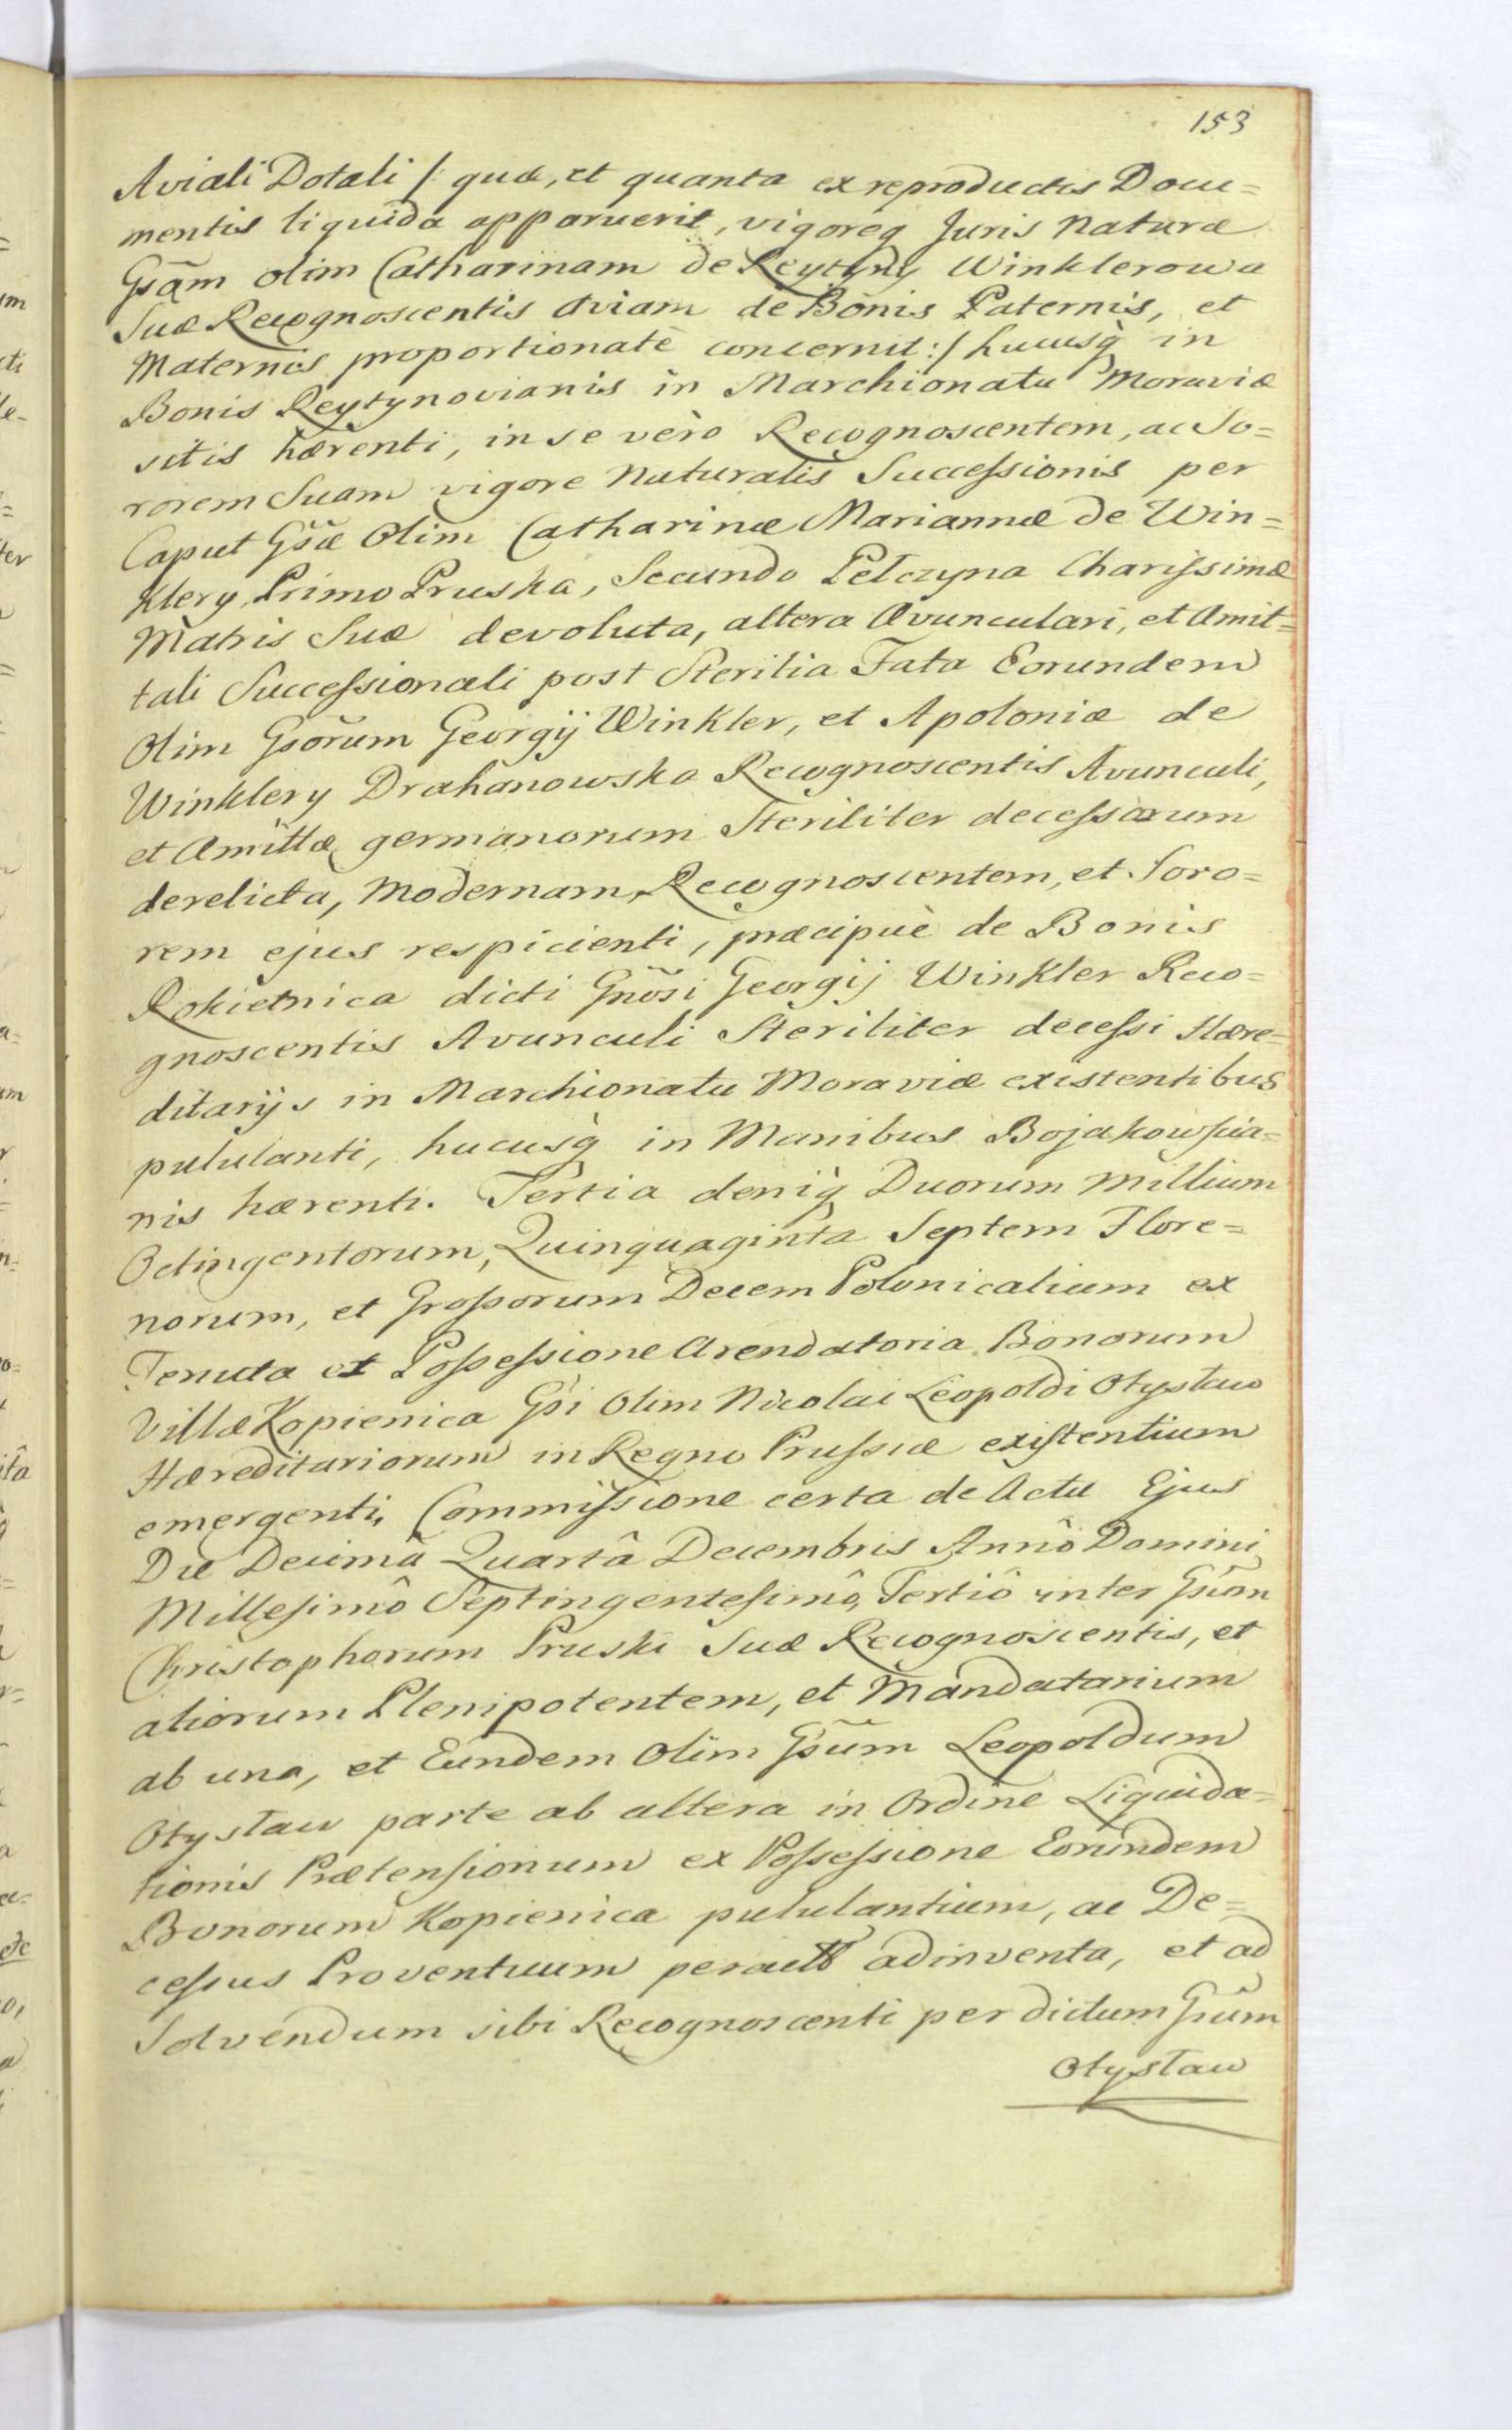 153
Aviali Dotali /: quæ, et quanta ex reproductis Docu=
mentis liquida apparuerit, vigoreq Juris Naturæ
Gsãm olim Catharinam de Reytyny Winklerowa
Suæ Recognoscentis Aviam de Bonis Paternis, et
Maternis proportionatè concernit :/ hucusq̀ in
Bonis Reytynovianis in Marchionatu Moraviæ
sitis hærenti, in se verò Recognoscentem, ac So=
rorem Suam vigore Naturalis Successionis per
Caput Gsæ Olim Catharinæ Mariannæ de Win=
klery Primo Pruska, Secundo Pelczyna Charissimæ
Matris Suæ devoluta, altera Avunculari, et Amit=
tali Successionali post Sterilia Fata Eorundem
Olim Gsõrum Georgij Winkler, et Apoloniæ de
Winklery Drahanowska Recognoscentis Avunculi,
et Amittæ germanorum Steriliter decessorum
derelicta, Modernam Recognoscentem, et Soro=
rem ejus respicienti, præcipuè de Bonis
Rokietnica dicti Gnõsi Georgij Winkler Reco=
gnoscentis Avunculi Steriliter decessi Hære=
ditarijs in Marchionatu Moraviæ existentibus
pululanti, hucusq̀ in Manibus Bojakowscia=
nis hærenti. Tertia deniq̀ Duorum Millium
Octingentorum, Quinquaginta Septem Flore=
norum, et Grossorum Decem Polonicalium ex
Tenuta et Possessione Arendatoria Bonorum
Villæ Kopienica Gsi Olim Nicolai Leopoldi Otystaw
Hæreditariorum in Regno Prussiæ existentium
emergenti, Commissione certa de Actu Ejus
Die Decimâ Quartâ Decembris Annô Domini
Millesimô Septingentesimô, Tertiô inter Gsum
Christophorum Pruski Suæ Recognoscentis, et
aliorum Plenipotentem, et Mandatarium
ab una, et Eundem Olim Gsum Leopoldum
Otystaw parte ab altera in Ordine Liquida=
tionis Prætensionum ex Possessione Eorundem
Bonorum Kopienica pululantium, ac De=
cessus Proventuum adinventa, et ad
Solvendum sibi Recognoscenti per dictum Gsũm
Otystaw